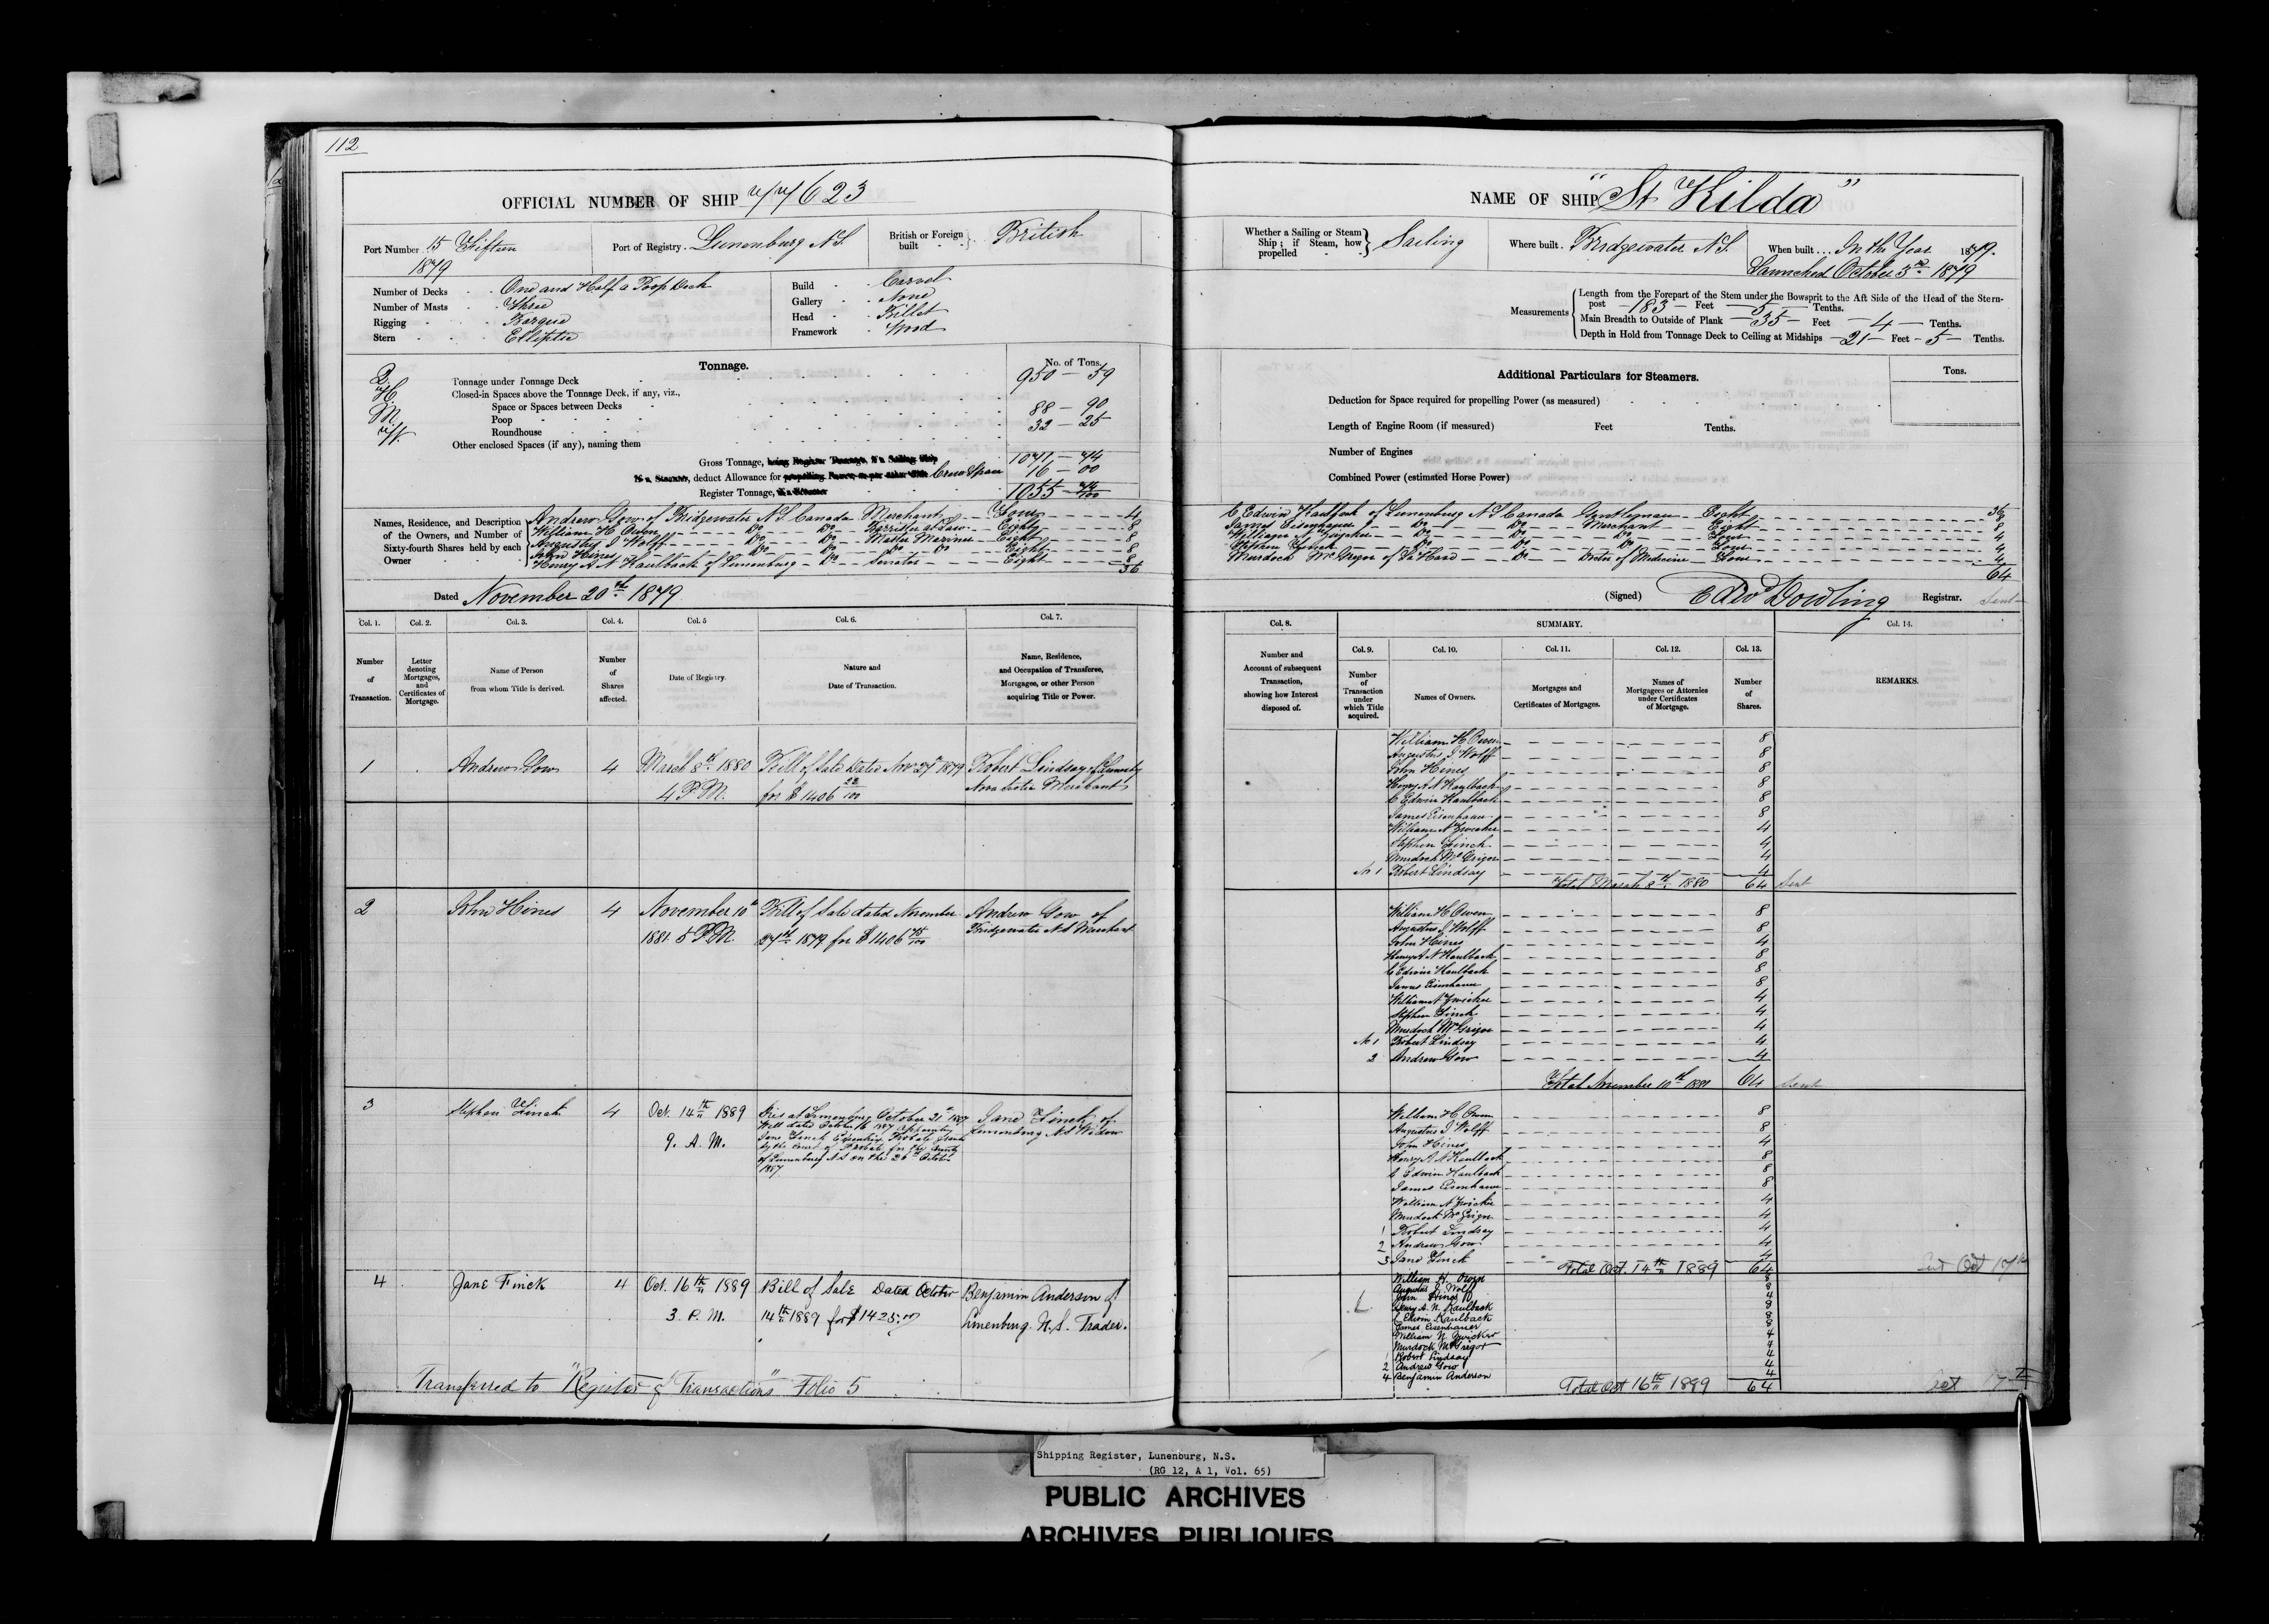 112
OFFICIAL NUMBER OF SHIP 77623
Port Number 15 Fifteen
1879
Port of Registry. Lunenburg N.S.
British or Foreign built British
Number of Decks One and Half a Poop Deck
Number of Masts Three
Rigging Barque
Stern Elliptic
Build Carvel
Gallery None
Head Billet
Framework Wood
Tonnage.
No. of Tons.
Tonnage under Tonnage Deck 950 — 59
Closed-in Spaces above the Tonnage Deck, if any, viz.,
Space or Spaces between Decks
Poop 88 — 90
Roundhouse 32 — 25
Other enclosed Spaces (if any), naming them
Gross Tonnage, being Register Tonnage, if a Sailing Ship 1071 — 74
If a Steamer, deduct Allowance for propelling Power, as per other side Crew Space 16 — 00
Register Tonnage, if a Steamer 1055 — 74/100
Names, Residence, and Description of the Owners, and Number of Sixty-fourth Shares held by each Owner
Andrew Gow of Bridgewater N.S. Canada Merchant Four 4
William H Owen Do Do Barrister at Law Eight 8
Augustus J Wolff Do Do Master Mariner Eight 8
John Hines Do Do Do Do Eight 8
Henry A N Kaulback of Lunenburg Do Senator Eight 8
36
Dated November 20th 1879
Col. 1. Col. 2. Col. 3. Col. 4. Col. 5 Col. 6. Col. 7.
Number of Transaction.
Letter denoting Mortgages, and Certificates of Mortgage.
Name of Person from whom Title is derived.
Number of Shares affected.
Date of Registry.
Nature and Date of Transaction.
Name, Residence, and Occupation of Transferee, Mortgagee, or other Person acquiring Title or Power.
1 Andrew Gow 4 March 8th 1880 Bill of Sale Dated Nov 27th 1879 Robert Lindsay of
4 P.M. for $1406 22/100 Nova Scotia Merchant
2 John Hines 4 November 10th Bill of Sale dated November Andrew Gow of
1881. 5 P.M. 27th 1879 for $1406 75/100 Bridgewater N.S Merchant
3 Stephen Finck 4 Oct. 14th 1889 Died at Lunenburg October 21st 1887 Jane Finck of
Will dated October 16 1887 appointing Lunenburg N.S Widow
9. A. M. Jane Finck Executrix Probate granted
by the Court of Probate for the County
of Lunenburg N.S on the 26th October
1887
4 Jane Finck 4 Oct. 16th 1889 Bill of Sale Dated October Benjamin Anderson of
3. P. M. 14th 1889 for $1425.00 Lunenburg. N.S. Trader.
Transferred to "Register of Transactions" Folio 5
NAME OF SHIP "St Kilda"
Whether a Sailing or Steam Ship; if Steam, how propelled Sailing
Where built. Bridgewater N.S.
When built In the Year 1879.
Launched October 3rd 1879
Measurements
Length from the Forepart of the Stem under the Bowsprit to the Aft Side of the Head of the Stern-
post — 183 — Feet — 5 — Tenths.
Main Breadth to Outside of Plank — 35 — Feet — 4 — Tenths.
Depth in Hold from Tonnage Deck to Ceiling at Midships — 21 — Feet — 5 — Tenths.
Additional Particulars for Steamers.
Tons.
Deduction for Space required for propelling Power (as measured)
Length of Engine Room (if measured) Feet Tenths.
Number of Engines
Combined Power (estimated Horse Power)
36
C Edwin Kaulback of Lunenburg N S Canada Gentleman Eight 8
James Eisenhauer Do Do Merchant Eight 8
William N Zwicker Do Do Do Four 4
Stephen Finck Do Do Do Four 4
Murdoch McGregor of LaHave Do Doctor of Medicine Four 4
64
(Signed) Edw Dowling Registrar. Sent
Col. 8. SUMMARY. Col. 14.
Number and Account of subsequent Transaction, showing how Interest disposed of.
Col. 9. Col. 10. Col. 11. Col. 12. Col. 13.
Number of Transaction under which Title acquired.
Names of Owners.
Mortgages and Certificates of Mortgages.
Names of Mortgagees or Attornies under Certificates of Mortgage.
Number of Shares.
REMARKS.
William H Owen 8
Augustus J Wolff 8
John Hines 8
Henry A N Kaulback 8
C Edwin Kaulback 8
James Eisenhauer 8
William N Zwicker 4
Stephen Finck 4
Murdoch McGrigor 4
No 1 Robert Lindsay 4
Total March 8th 1880 64 Sent
William H Owen 8
Augustus J Wolff 8
John Hines 4
Henry A N Kaulback 8
C Edwin Kaulback 8
James Eisenhauer 8
William N Zwicker 4
Stephen Finck 4
Murdoch McGrigor 4
No 1 Robert Lindsay 4
2 Andrew Gow 4
Total November 10th 1881 64 Sent
William H Owen 8
Augustus J Wolff 8
John Hines 4
Henry A N Kaulback 8
C Edwin Kaulback 8
James Eisenhauer 8
William N Zwicker 4
Murdoch McGrigor 4
1 Robert Lindsay 4
2 Andrew Gow 4
3 Jane Finck 4
Total Oct. 14th 1889 64 Sent Oct 17th
William H. Owen 8
Augustus J. Wolff 8
John Hines 4
Henry A. N. Kaulback 8
C Edwin Kaulback 8
James Eisenhauer 8
William N. Zwicker 4
Murdock McGrigor 4
1 Robert Lindsay 4
2 Andrew Gow 4
4 Benjamin Anderson 4
Total Oct 16th 1889 64 17th
Shipping Register, Lunenburg, N.S.
(RG 12, A 1, Vol. 65)
PUBLIC ARCHIVES
ARCHIVES PUBLIQUES